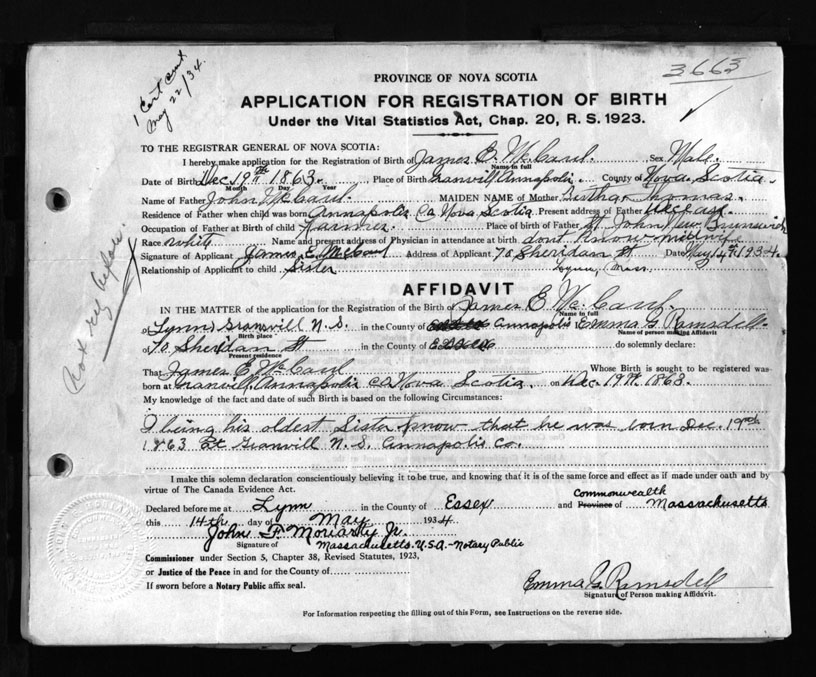 1 Cert sent
May 22/34.
3663
PROVINCE OF NOVA SCOTIA
APPLICATION FOR REGISTRATION OF BIRTH
Under the Vital Statistics Act, Chap. 20, R. S. 1923.
TO THE REGISTRAR GENERAL OF NOVA SCOTIA:
I hereby make application for the Registration of Birth of James E. McCaul. Sex Male.
Name in full
Date of Birth Dec 19th 1863. Place of Birth Granvill Annapolis. County of Nova Scotia.
Month Day Year
Name of Father John McCaul. MAIDEN NAME of Mother Bertha Thomas.
Residence of Father when child was born Annapolis Co Nova Scotia Present address of Father
Occupation of Father at Birth of child Farmer. Place of birth of Father St. John New Brunswick
Race white Name and present address of Physician in attendance at birth dont know midwife
Signature of Applicant James E. McCaul Address of Applicant 70 Sheridan St Date May 14th 1934.
Relationship of Applicant to child Sister Lynn, Mass.
Not reg before.
AFFIDAVIT
IN THE MATTER of the application for the Registration of the Birth of James E. McCaul.
Name in full
of Lynn Granvill N.S. in the County of Essex Annapolis I, Emma G Ramsdell.
Birth place Name of person making Affidavit
70 Sheridan St in the County of Essex do solemnly declare:
Present residence
That James E McCaul Whose Birth is sought to be registered was
born at Granvill Annapolis Co Nova Scotia. on Dec. 19th 1863.
My knowledge of the fact and date of such Birth is based on the following Circumstances:
I being his oldest Sister know that he was born Dec. 19th
1863 At Granvill N.S. Annapolis Co.
I make this solemn declaration conscientiously believing it to be true, and knowing that it is of the same force and effect as if made under oath and by
virtue of The Canada Evidence Act.
Commonwealth
Declared before me at Lynn in the County of Essex and Province of Massachusetts
this 14th day of May 1934
John F. Moriarty Jr.
Signature of Massachusetts. U.S.A.-Notary Public
Commissioner under Section 5, Chapter 38, Revised Statutes, 1923,
or Justice of the Peace in and for the County of
If sworn before a Notary Public affix seal.
Emma G Ramsdell
Signature of Person making Affidavit.
For Information respecting the filling out of this Form, see Instructions on the reverse side.